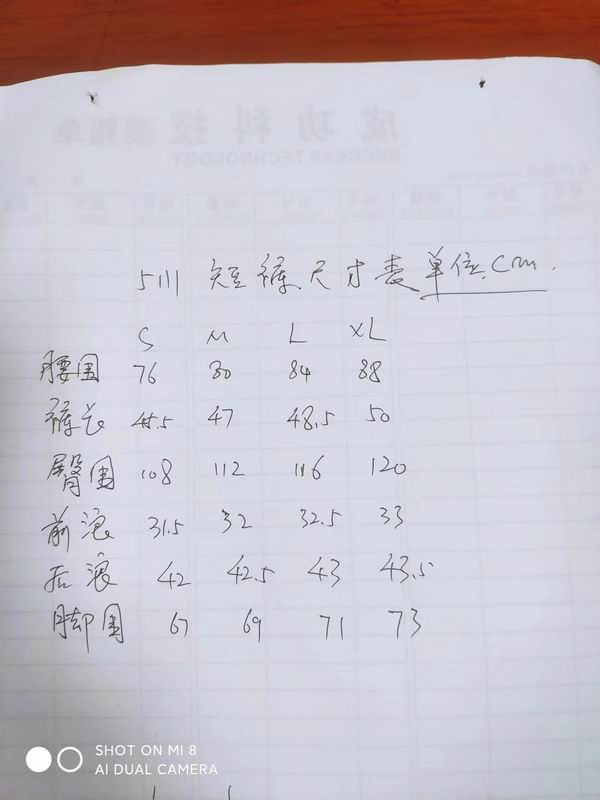 成功科技装箱单
SUCCESS TECHNOLOGY
5111 短裤尺寸表 单位:cm.
S M L XL
腰围 76 80 84 88
裤长 45.5 47 48.5 50
臀围 108 112 116 120
前浪 31.5 32 32.5 33
后浪 42 42.5 43 43.5
脚围 67 69 71 73
SHOT ON MI 8
AI DUAL CAMERA